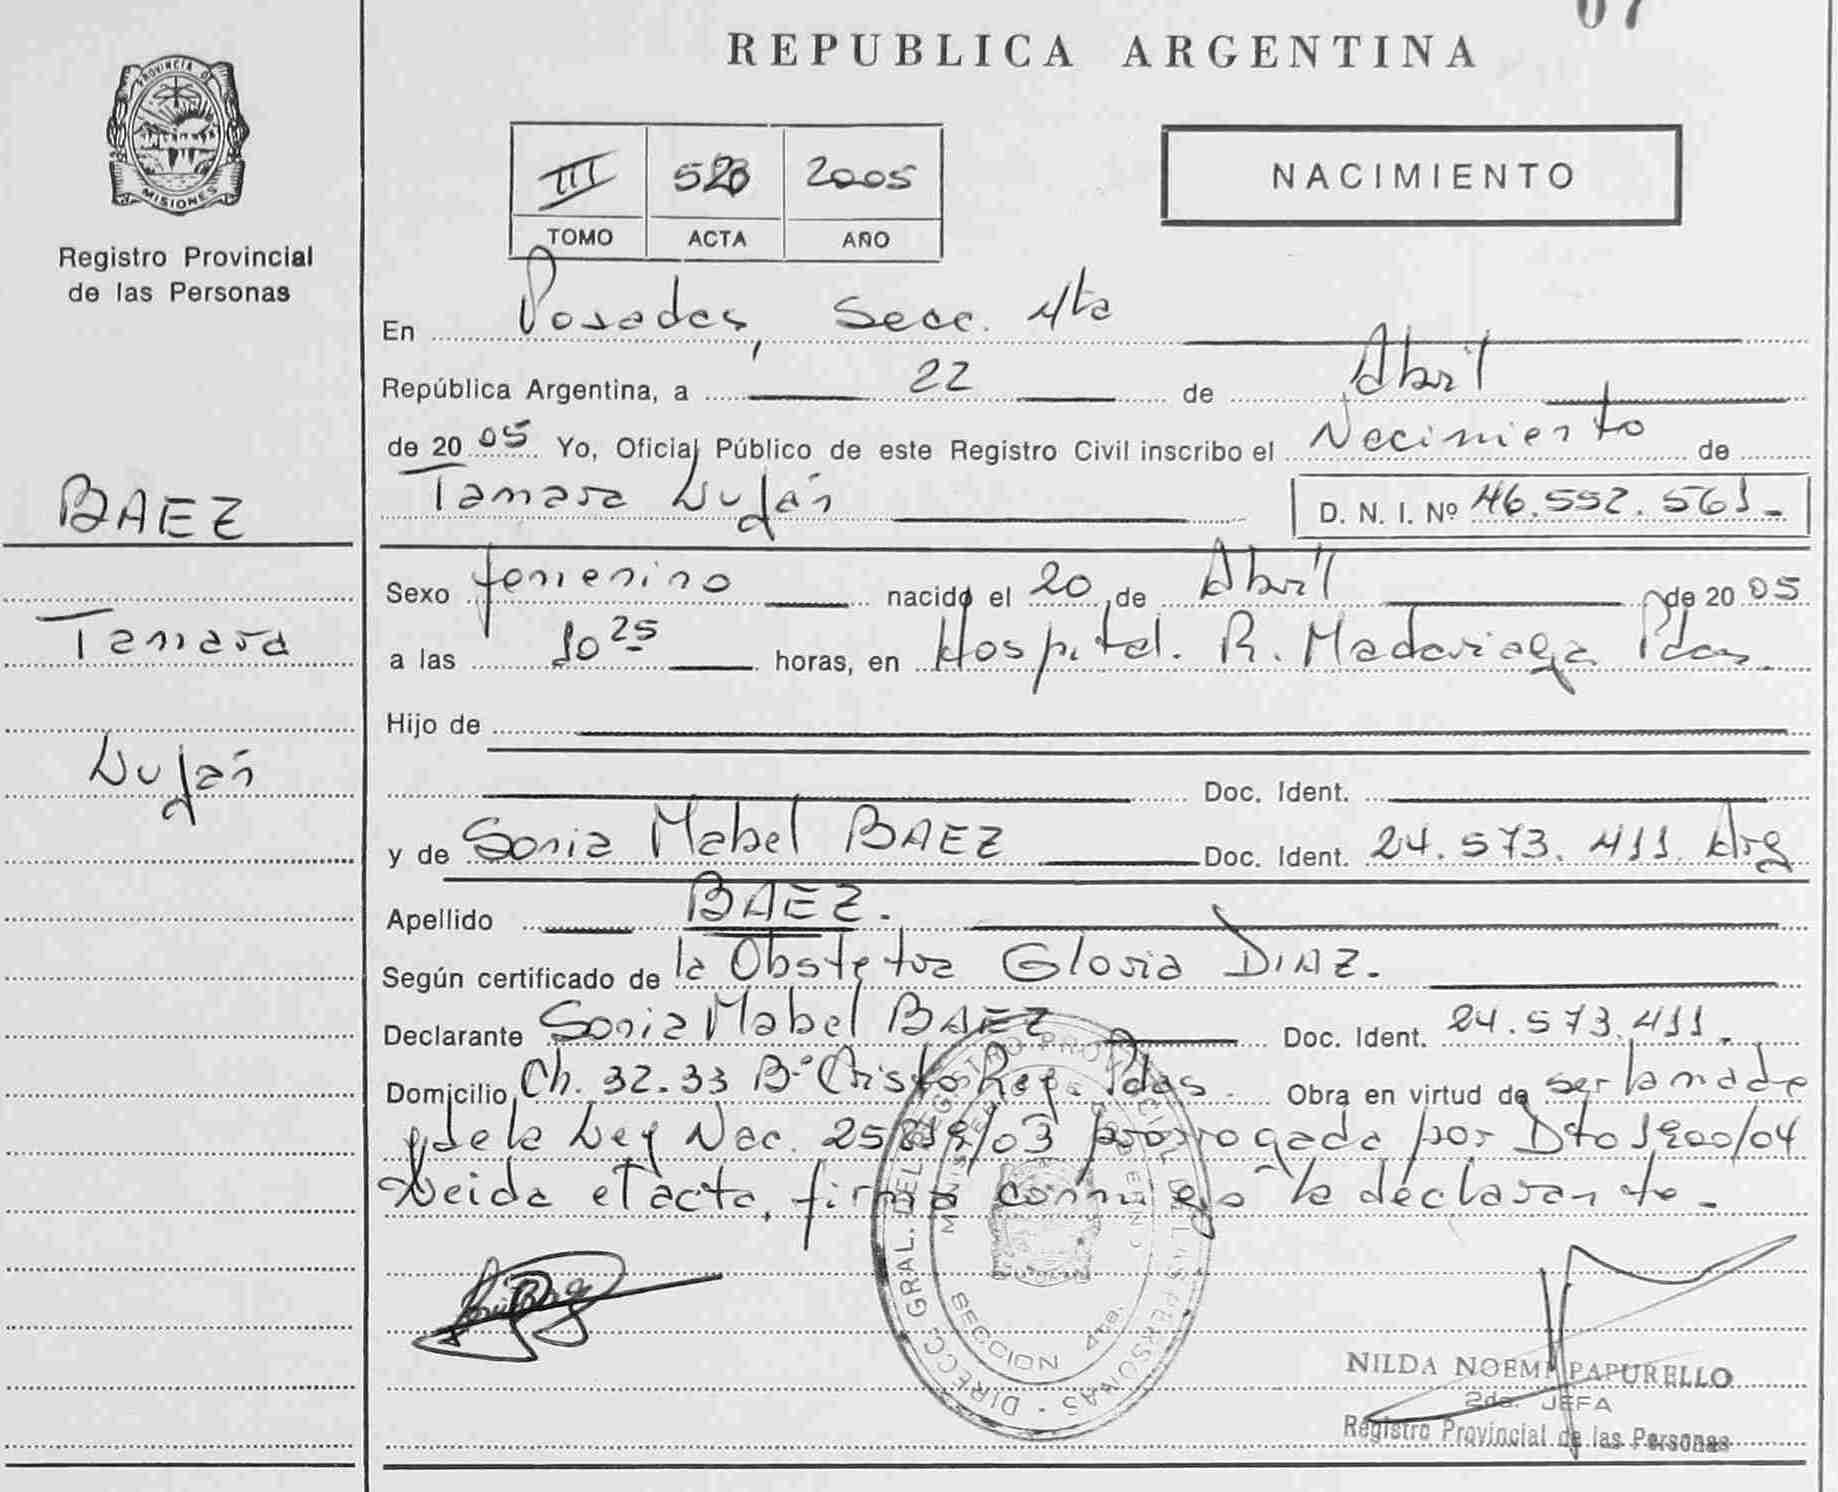 07
REPUBLICA ARGENTINA
PROVINCIA DE
MISIONES
Registro Provincial
de las Personas
III 2005
TOMO ACTA AÑO
NACIMIENTO
En Posadas, Secc. 4ta
República Argentina, a 22 de Abril
de 20 05 Yo, Oficial Público de este Registro Civil inscribo el Nacimiento de
Tamara Luján D. N. I. Nº 46.552.561.-
BAEZ
Sexo femenino nacido el 20 de Abril de 20 05
Tamara
a las 10 25 horas, en Hospital. R. Madariaga Pdas.
Hijo de
Luján
Doc. Ident.
y de Sonia Mabel BAEZ Doc. Ident. 24.573.411. Arg
Apellido BAEZ.
Según certificado de la Obstetra Gloria DIAZ.
Declarante Sonia Mabel BAEZ Doc. Ident. 24.573.411.
Domicilio Ch. 32.33 Bº Cristo Rey. Pdas. Obra en virtud de ser la madre
y de la Ley Nac. 25819/03 prorrogada por Dto 1900/04
Leida el acta, firma conmigo la declarante.-
DIRECC. GRAL. DEL REGISTRO PROVINCIAL DE LAS PERSONAS
SECCION 4ta.
NILDA NOEMI PAPURELLO
2da. JEFA
Registro Provincial de las Personas